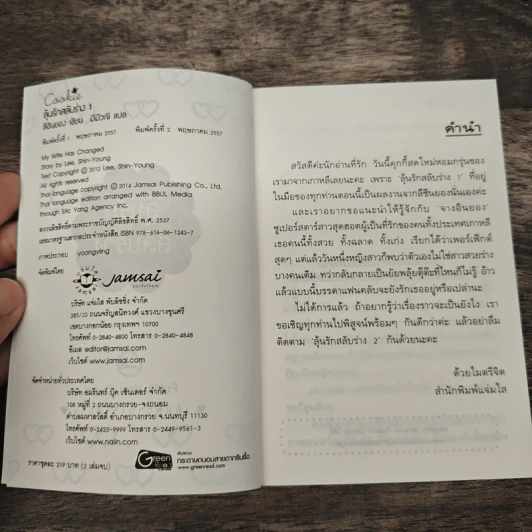 Cookie
ลุ้นรักสลับร่าง 1
ลีชินยอง เขียน มีมิวณิ แปล
พิมพ์ครั้งที่ 1 พฤษภาคม 2557 พิมพ์ครั้งที่ 2 พฤษภาคม 2557
My Wife Has Changed
Story by Lee, Shin-Young
Text Copyright © 2012 Lee, Shin-Young
All rights reserved
Thai language copyright © 2014 Jamsai Publishing Co., Ltd.
Thai language edition arranged with BBUL Media
through Eric Yang Agency Inc.
สงวนลิขสิทธิ์ตามพระราชบัญญัติลิขสิทธิ์ พ.ศ. 2537
เลขมาตรฐานสากลประจำหนังสือ ISBN 978-616-06-1243-7
ภาพประกอบ yoongying
จัดพิมพ์โดย
jamsai
บริษัท แจ่มใส พับลิชชิ่ง จำกัด
285/33 ถนนจรัญสนิทวงศ์ แขวงบางขุนศรี
เขตบางกอกน้อย กรุงเทพฯ 10700
โทรศัพท์ 0-2840-4800 โทรสาร 0-2840-4848
อีเมล editor@jamsai.com
เว็บไซต์ www.jamsai.com
จัดจำหน่ายทั่วประเทศโดย
บริษัท อมรินทร์ บุ๊ค เซ็นเตอร์ จำกัด
108 หมู่ที่ 2 ถนนบางกรวย-จงถนอม
ตำบลมหาสวัสดิ์ อำเภอบางกรวย จ.นนทบุรี 11130
โทรศัพท์ 0-2423-9999 โทรสาร 0-2449-9561-3
เว็บไซต์ www.naiin.com
ราคาชุดละ 219 บาท (2 เล่มจบ)
Green
Read
พิมพ์บน
กระดาษถนอมสายตากรีนรี้ด
www.greenread.com
คำนำ
สวัสดีค่ะนักอ่านที่รัก วันนี้คุกกี้สดใหม่หอมกรุ่นของ
เรามาจากเกาหลีเลยนะคะ เพราะ 'ลุ้นรักสลับร่าง 1' ที่อยู่
ในมือของทุกท่านตอนนี้เป็นผลงานจากลีชินยองนั่นเองค่ะ
และเราอยากขอแนะนำให้รู้จักกับ 'จางอินยอง'
ซูเปอร์สตาร์สาวสุดฮอตผู้เป็นที่รักของคนทั้งประเทศเกาหลี
เธอคนนี้ทั้งสวย ทั้งฉลาด ทั้งเก่ง เรียกได้ว่าเพอร์เฟ็กต์
สุดๆ แต่แล้ววันหนึ่งหญิงสาวก็พบว่าตัวเองไม่ใช่สาวสวยร่าง
บางคนเดิม ทว่ากลับกลายเป็นยัยพลุ้ยตุ๊ต๊ะที่ไหนก็ไม่รู้ อ้าว
แล้วแบบนี้บรรดาแฟนคลับจะยังรักเธออยู่หรือเปล่านะ
ไม่ได้การแล้ว ถ้าอยากรู้ว่าเรื่องราวจะเป็นยังไง เรา
ขอเชิญทุกท่านไปพิสูจน์พร้อมๆ กันดีกว่าค่ะ แล้วอย่าลืม
ติดตาม 'ลุ้นรักสลับร่าง 2' กันด้วยนะคะ
ด้วยไมตรีจิต
สำนักพิมพ์แจ่มใส